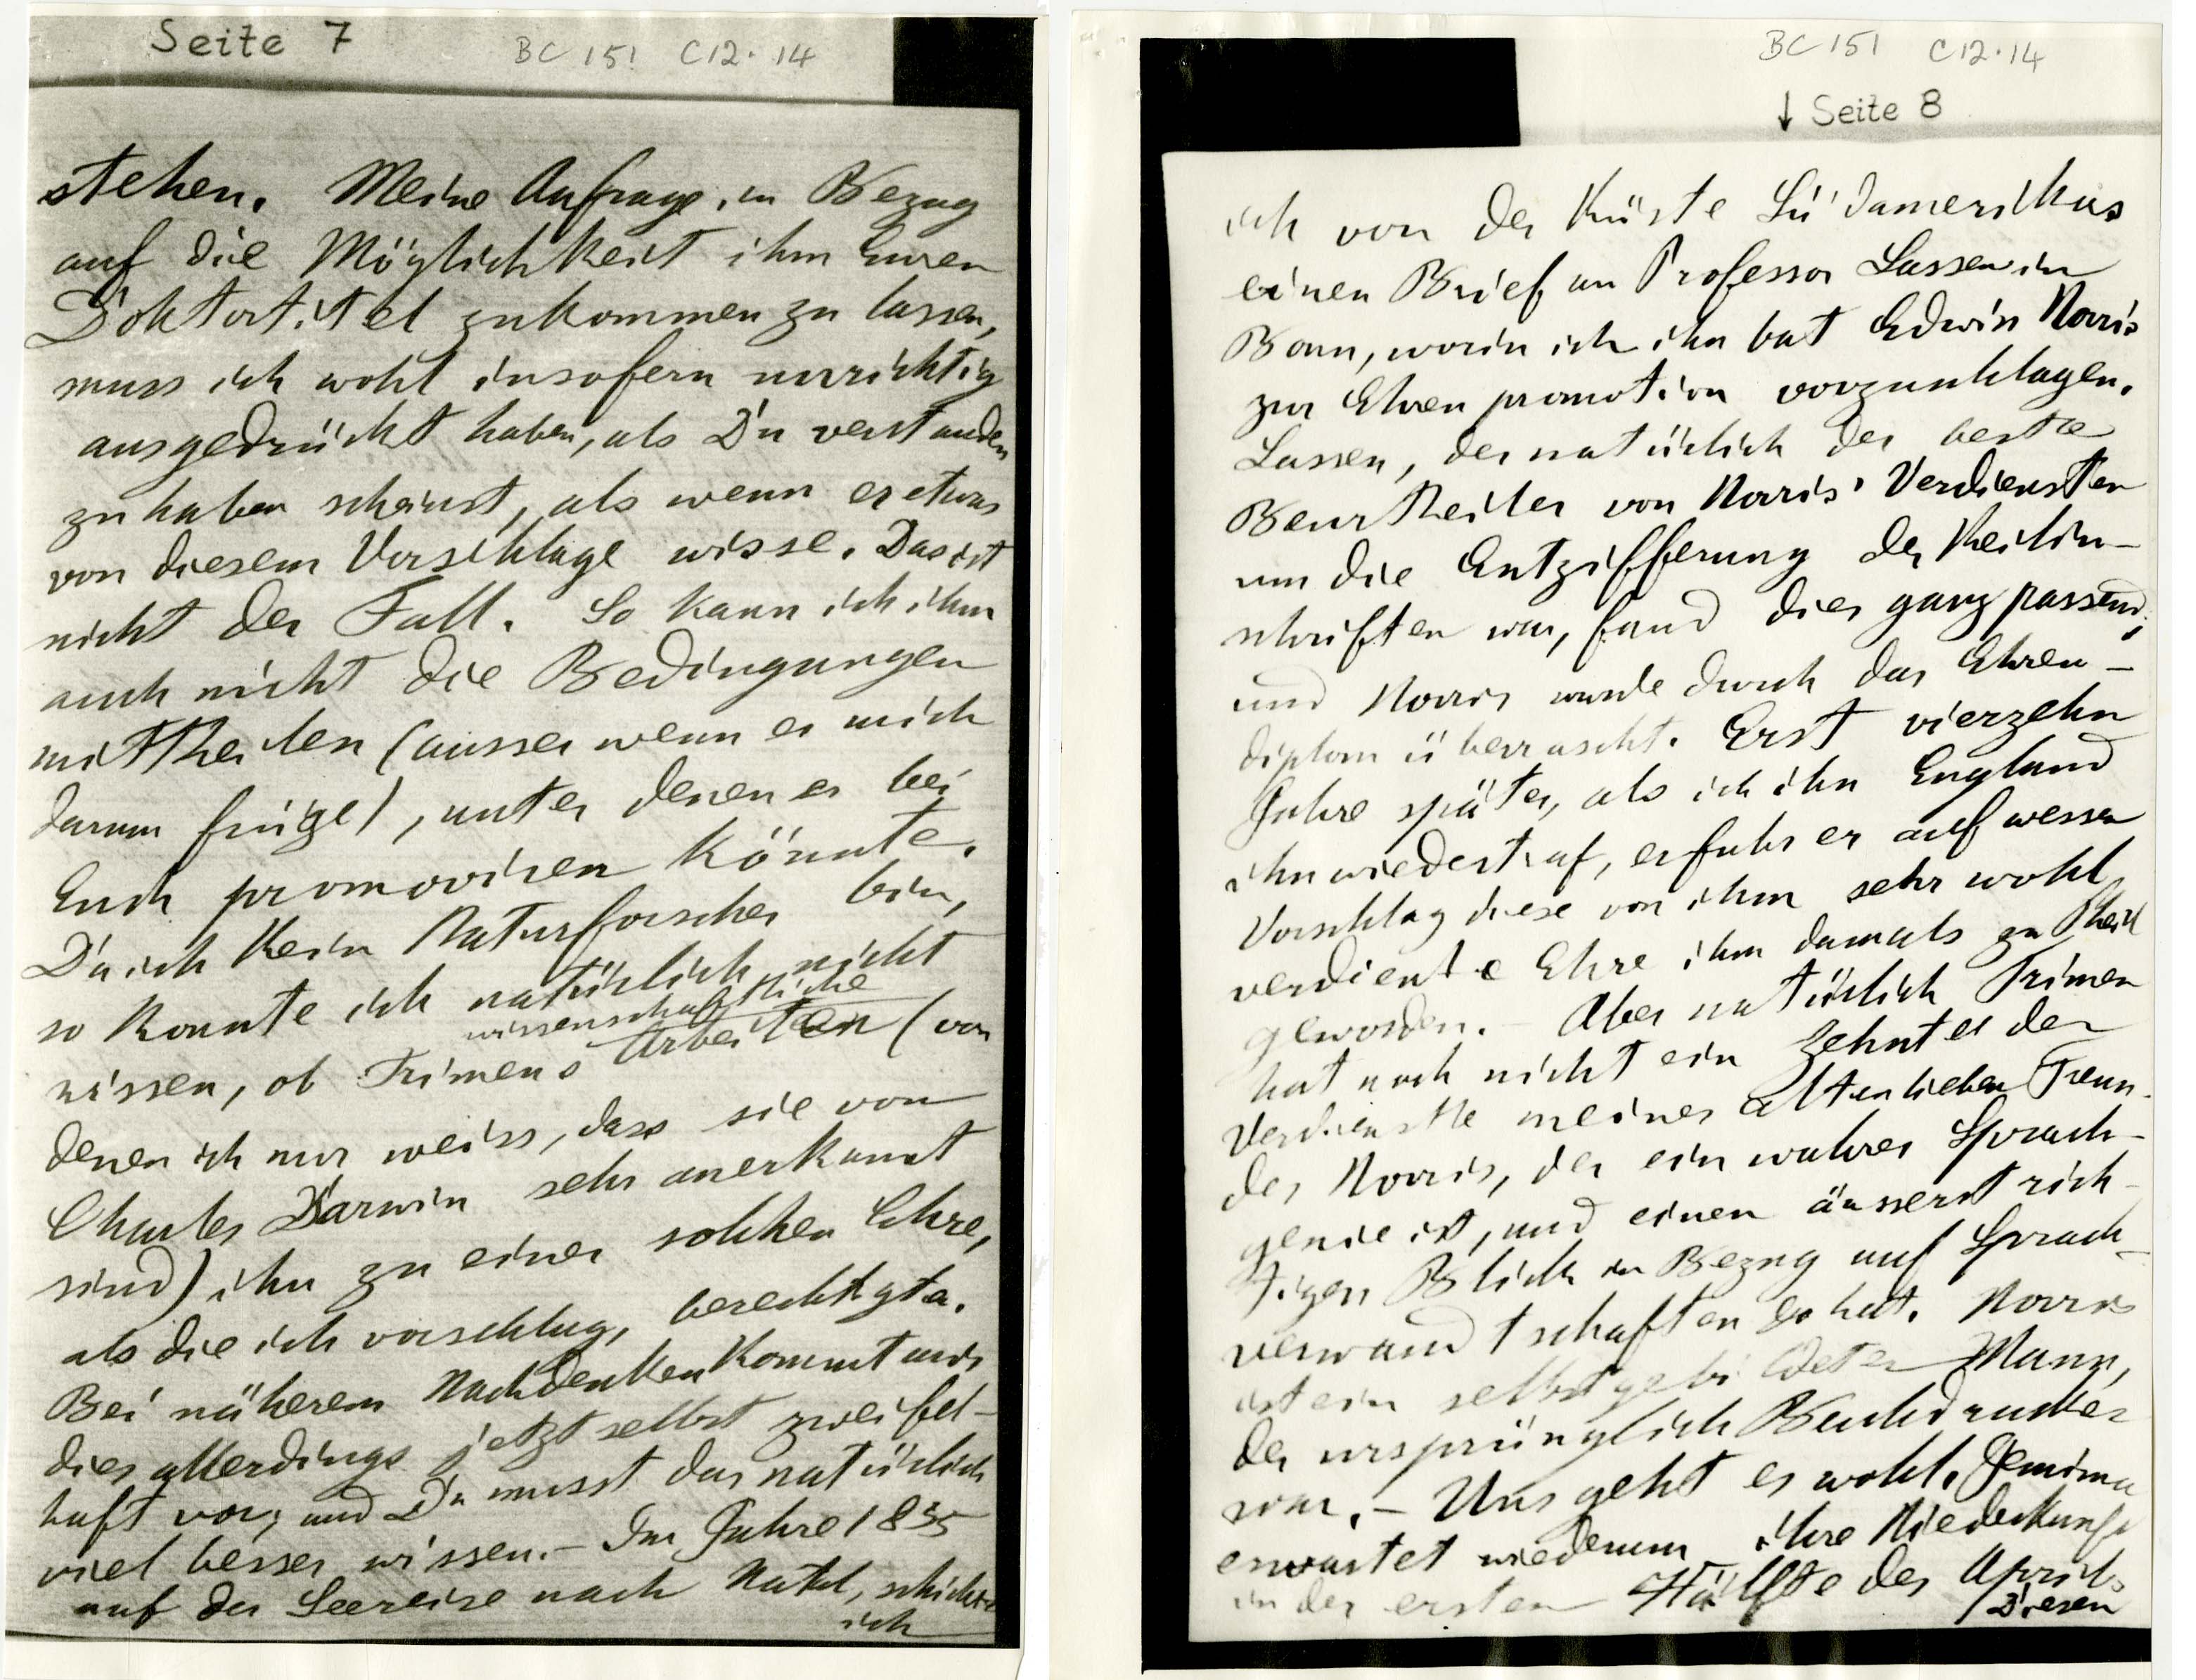 Seite 7
BC 151 C12.14
stehen. Meine Anfrage, in Bezug
auf die Möglichkeit ihm Euren
Doktortitel zukommen zu lassen,
muss ich wohl insofern unrichtig
ausgedrückt haben, als Du verstanden
zu haben scheinst, als wenn er etwas
von diesem Vorschlage wisse. Das ist
nicht der Fall. So kann ich ihm
auch nicht die Bedingungen
mittheilen (ausser wenn er mich
darum früge), unter denen er bei
Euch promoviren könnte.
Da ich kein Naturforscher bin,
so konnte ich natürlich nicht
wissenschaftliche
wissen, ob Trimens Arbeiten (von
denen ich nur weiss, dass sie von
Charles Darwin sehr anerkannt
sind) ihn zu einer solchen Ehre,
als die ich vorschlug, berechtigte.
Bei näherem Nachdenken kommt mir
dies allerdings jetzt selbst zweifel-
haft vor; und Du musst das natürlich
viel besser wissen.- Im Jahre 1855
auf der Seereise nach Natal, schickte
ich
BC 151 C12.14
↓ Seite 8
ich von der Küste Südamerikas
einen Brief an Professor Lassen in
Bonn, worin ich ihn bat Edwin Norris
zur Ehrenpromotion vorzuschlagen.
Lassen, der natürlich der beste
Beurtheiler von Norris' Verdiensten
um die Entzifferung der Keilin-
schriften war, fand dies ganz passend;
und Norris wurde durch das Ehren-
diplom überrascht. Erst vierzehn
Jahre später, als ich ihn England
ihn wiedertraf, erfuhr er auf wessen
Vorschlag diese von ihm sehr wohl
verdiente Ehre ihm damals zu Theil
geworden.- Aber natürlich Trimen
hat noch nicht ein Zehntel der
Verdienste meines alten lieben Freun-
des Norris, der ein wahres Sprach-
genie ist, und einen äusserst rich-
tigen Blick in Bezug auf Sprach-
verwandtschaften hat. Norris
ist ein selbstgebildeter Mann,
der ursprünglich Buchdrucker
war.- Uns geht es wohl. Jemima
erwartet wiederum ihre Niederkunft
in der ersten Hälfte des Aprils
Diesen